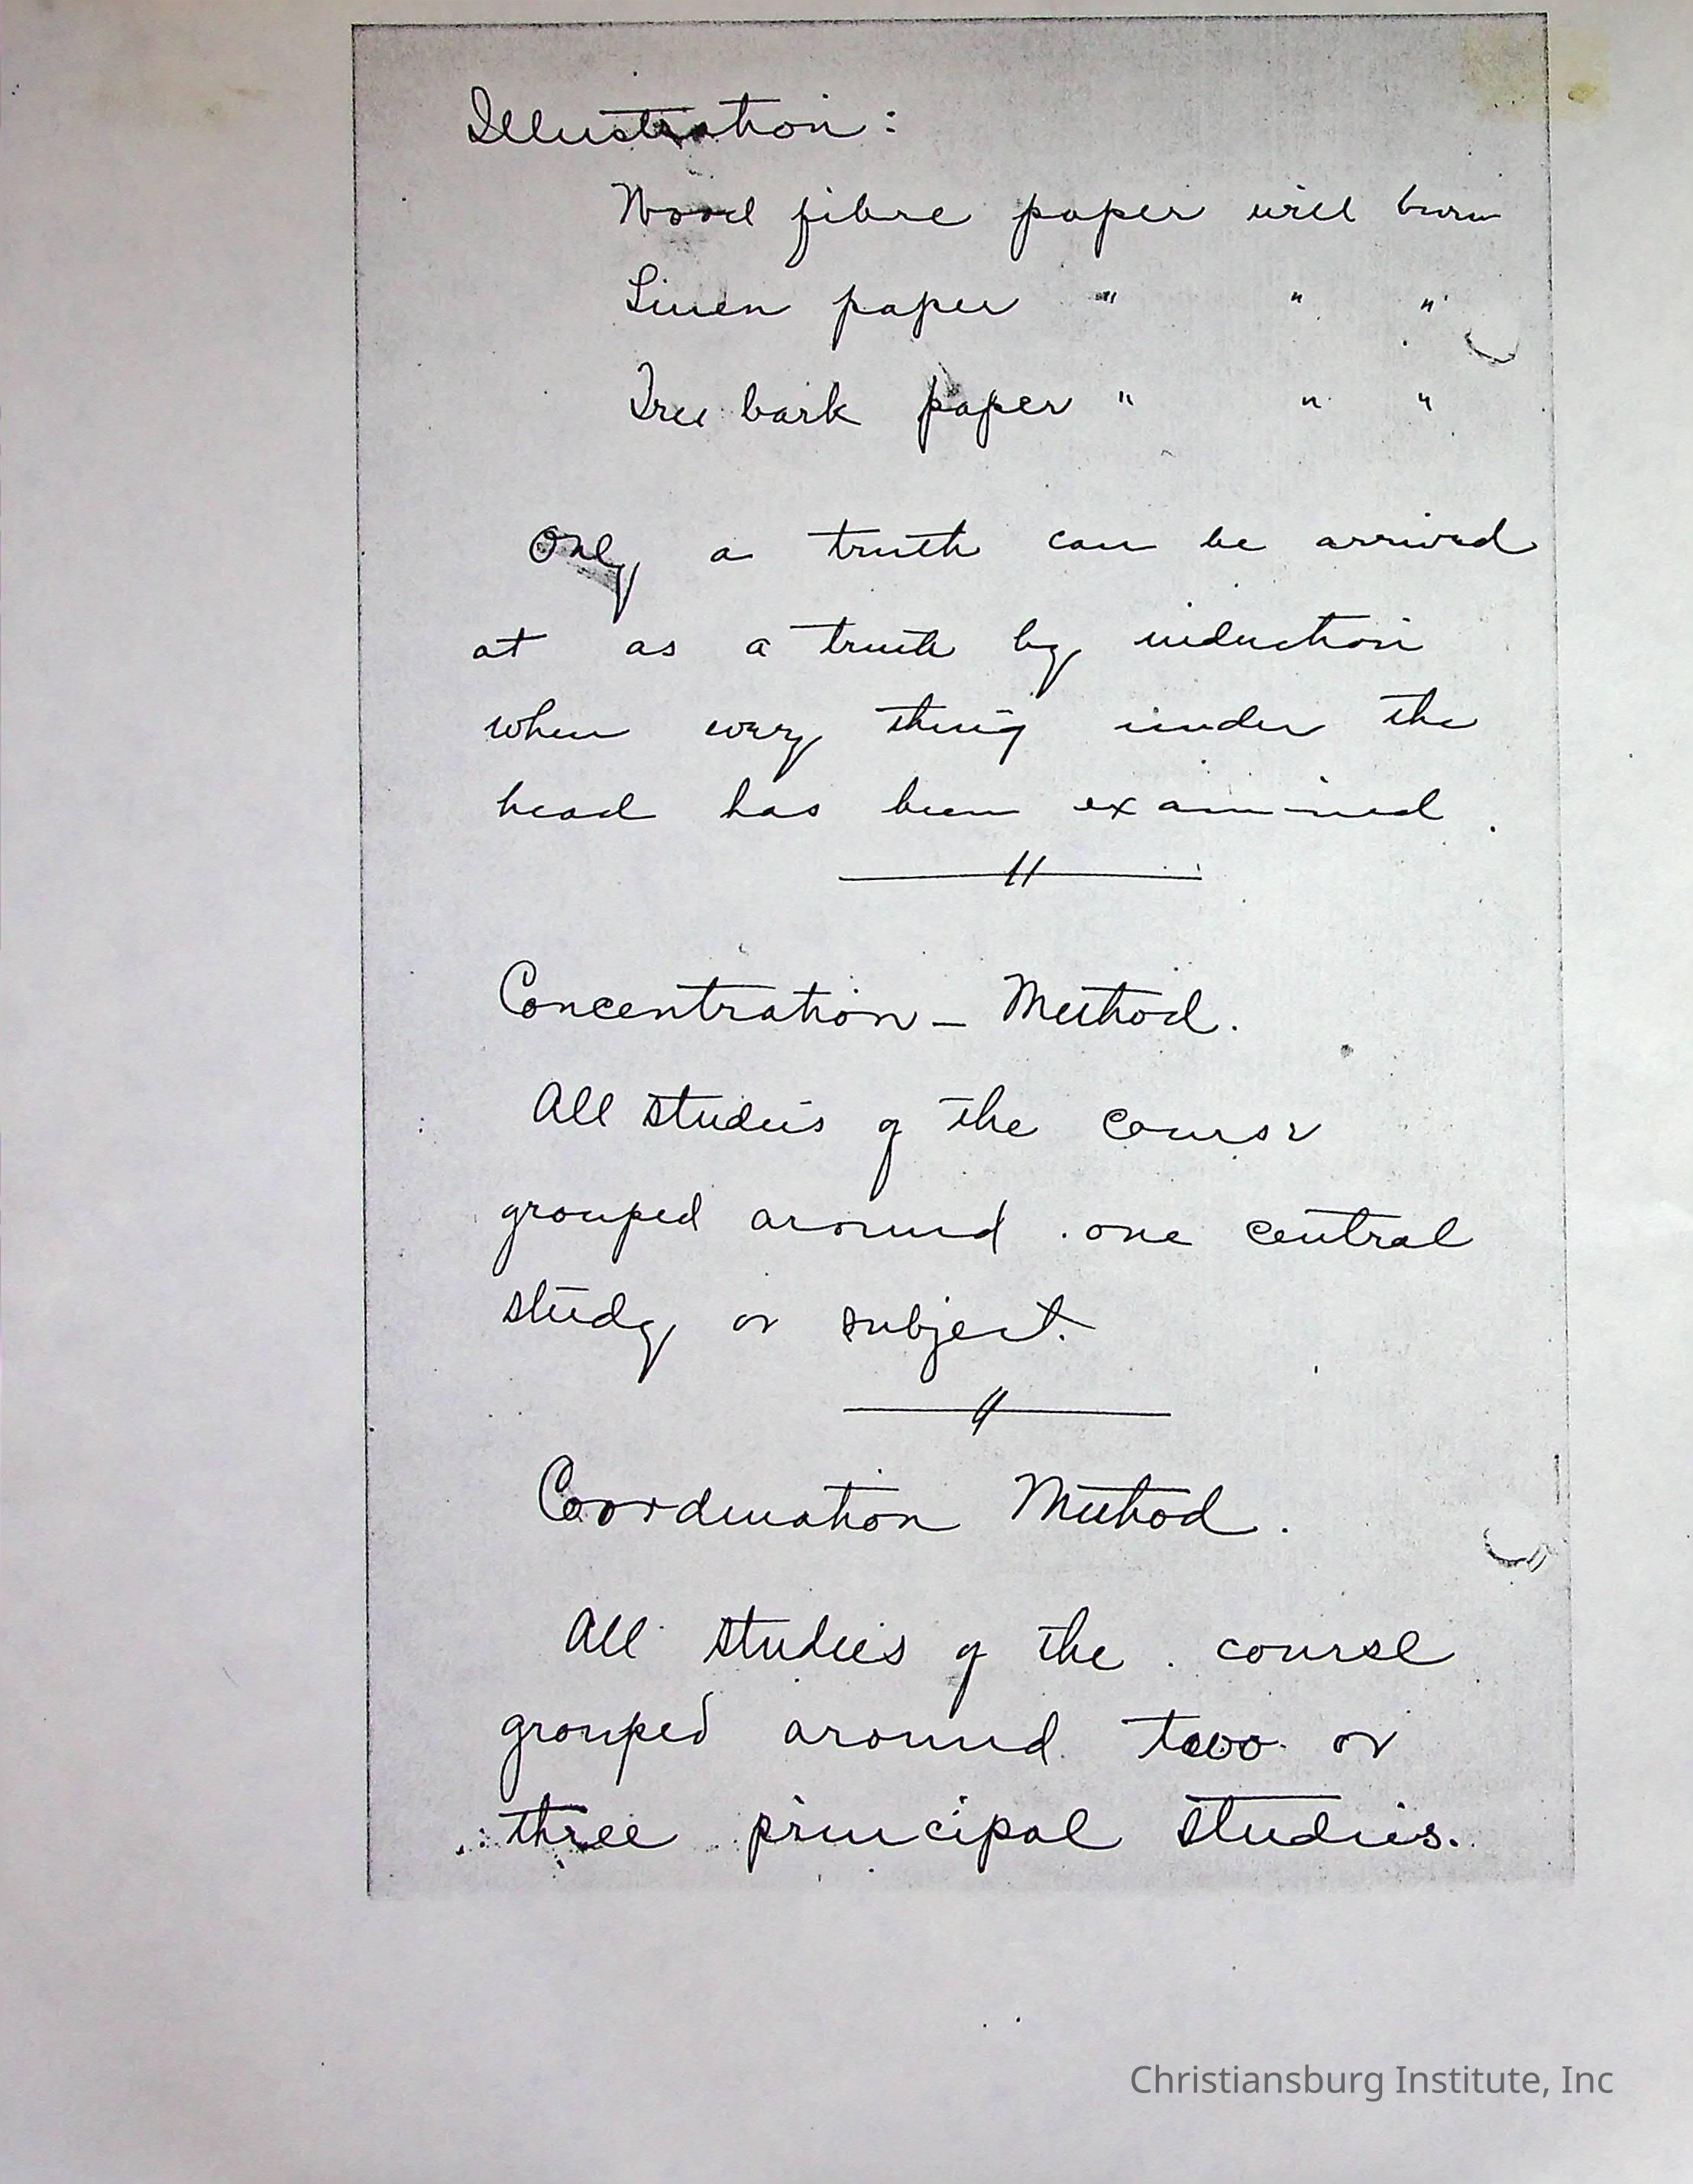 Illustration:
Wood fibre paper will burn
Linen paper " " "
Tree bark paper " " "
Only a truth can be arrived
at as a truth by induction
when every thing under the
head has been examined.
Concentration - Method.
All studies of the course
grouped around one central
study or subject.
Coordination Method.
All studies of the course
grouped around two or
three principal studies.
Christiansburg Institute, Inc